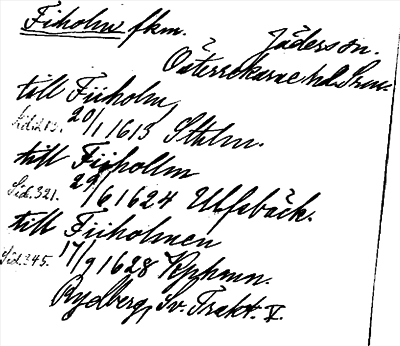 Fiholm fkm. Jäders sn.
Österrekarne hd. Srm.
till Fiiholm
Sid. 213. 20/1 1613 Sthlm.
till Fiihollm
Sid. 321. 29/6 1624 Ulfsbäck.
till Fiiholmen
Sid. 345. 17/9 1628 Kphmn.
Rydberg, Sv. Trakt. V.